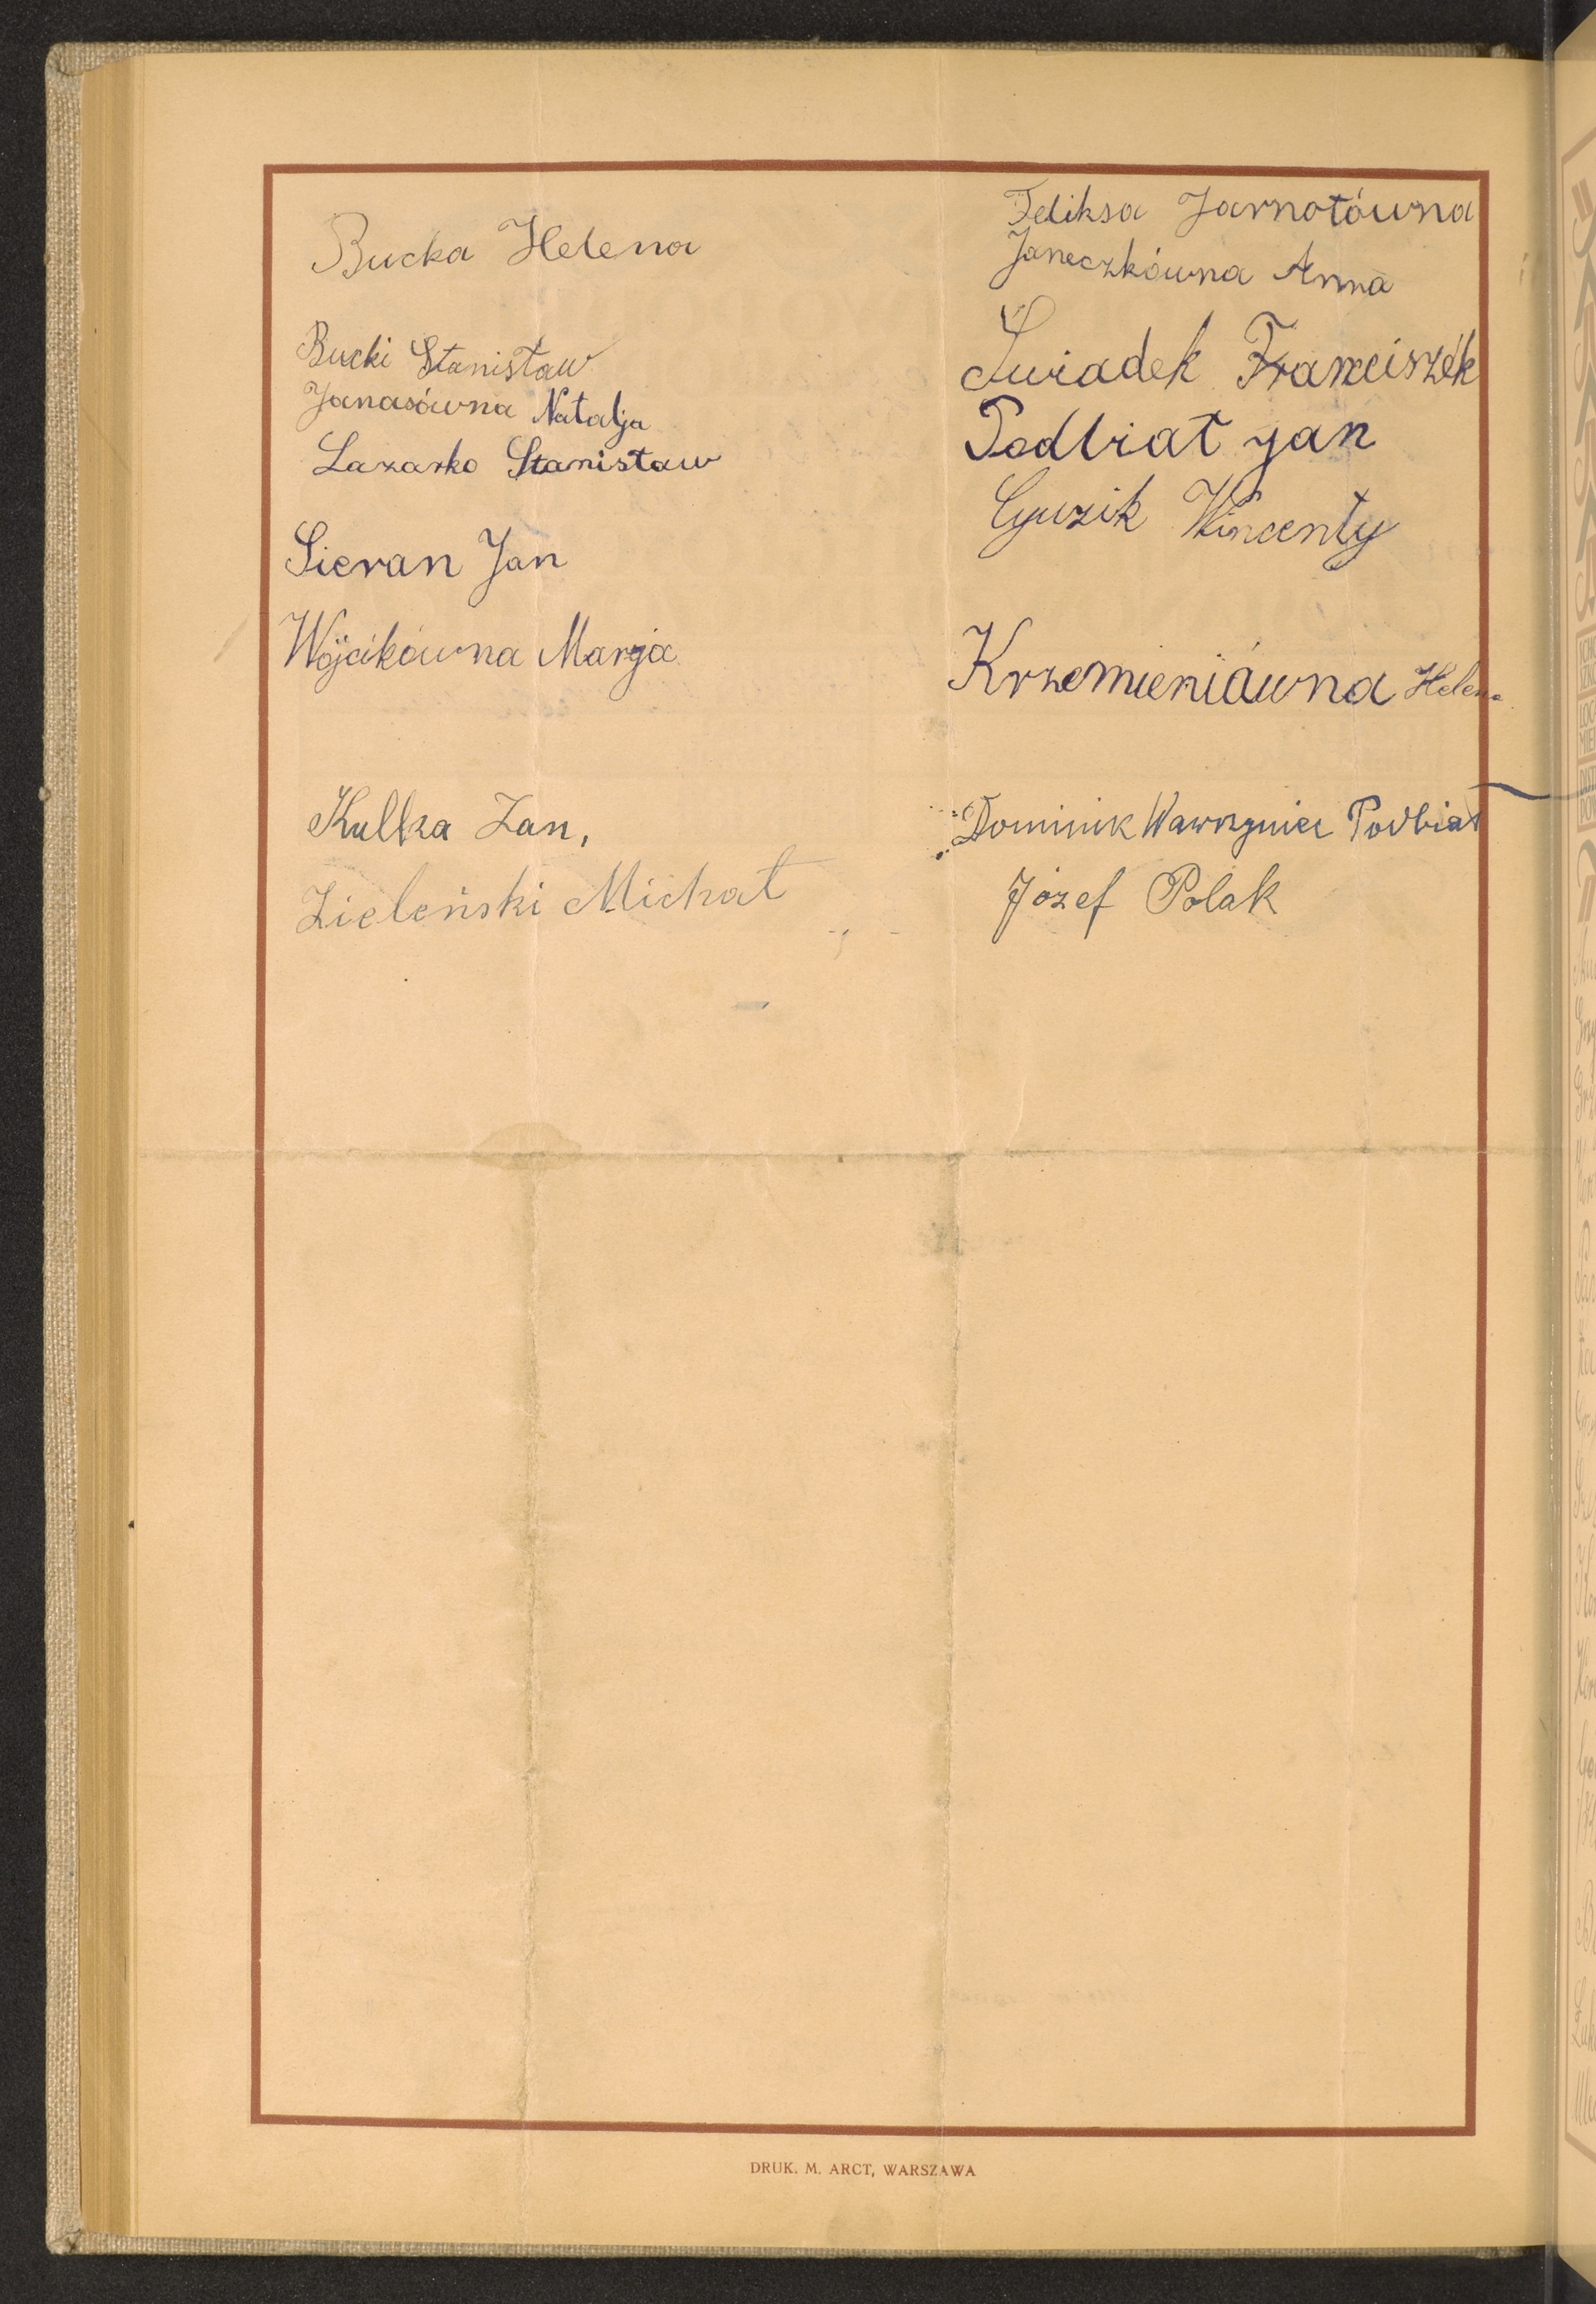 Bucka Helena
Bucki Stanisław
Janasówna Natalja
Lazarko Stanisław
Sieran Jan
Wójcikówna Marja
Kulka Jan,
Zieleński Michał
Feliksa Jarnotówna
Janeczkówna Anna
Świadek Franciszek
Podbiat Jan
Guzik Wincenty
Krzemieniówna Helena
Dominik Wawrzyniec Podbiat
Józef Polak
DRUK. M. ARCT, WARSZAWA